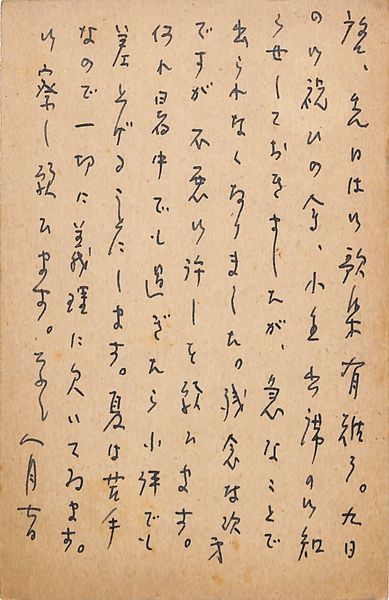 啓、先日は御歌集有難う。九日
の御祝ひの会、小生出席の御知
らせしておきましたが、急なことで
出られなくなりました。残念な次第
ですが不悪御許しを願ひます。
何れ暑中でも過ぎたら小評でも
差上げることにします。夏は苦手
なので一切に義理に欠いてゐます。
御察し願ひます。 八月七日